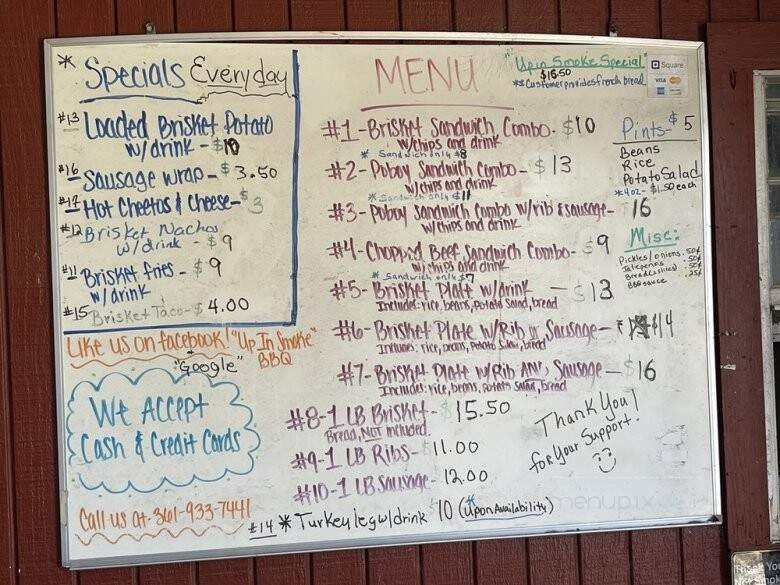 * Specials Everyday
#13 Loaded Brisket Potato
w/drink - $10
#16 Sausage wrap - $3.50
#17 Hot Cheetos & Cheese - $3
#12 Brisket Nachos
w/drink - $9
#11 Brisket fries - $9
w/drink
#15 Brisket Taco - $4.00
Like us on facebook! "Up In Smoke"
"Google" BBQ
We Accept
Cash & Credit Cards
Call us at - 361-933-7441
MENU
"Up in Smoke Special"
$16.50
** Customer provides french bread
Square
VISA
#1 - Brisket Sandwich Combo - $10
w/chips and drink
* Sandwich only $8
#2 - Poboy Sandwich Combo - $13
w/chips and drink
* Sandwich only $11
#3 - Poboy Sandwich Combo w/rib & sausage - 16
w/chips and drink
#4 - Chopped Beef Sandwich Combo - $9
w/chips and drink
* Sandwich only $7
#5 - Brisket Plate w/drink - $13
Includes: rice, beans, potato salad, bread
#6 - Brisket Plate w/Rib or Sausage - $14
Includes: rice, beans, potato salad, bread
#7 - Brisket Plate w/Rib AND Sausage - $16
Includes: rice, beans, potato salad, bread
#8 - 1 LB Brisket - 15.50
Bread, NOT included
#9 - 1 LB Ribs - 11.00
#10 - 1 LB Sausage - 12.00
#14 * Turkey leg w/drink 10 (Upon Availability)
Pints - $5
Beans
Rice
Potato Salad
*4oz - $1.50 each
Misc:
Pickles/onions . 50¢
Jalepenos . 50¢
Bread (2 slices) . 50¢
BBQ sauce . 25¢
Thank You!
for Your Support.
menupix
Thank You